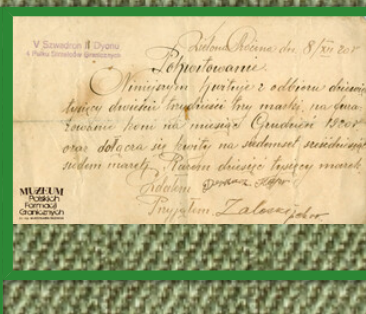 V Szwadron II Dyonu
4 Pułku Strzelców Granicznych
Zielona Różana dn. 8/XII 20 r
Pokwitowanie.
Niniejszym kwituję z odbioru dziewięć
tysięcy dwieście trzydzieści trzy marki, na
koni na miesiąc Grudzień 1920 r
oraz dołącza się kwity na siedemset sześćdziesiąt
siedem marek. Razem dziesięć tysięcy marek.
Zdałem
Przyjąłem Zaleski
MUZEUM
Polskich
Formacji
Granicznych